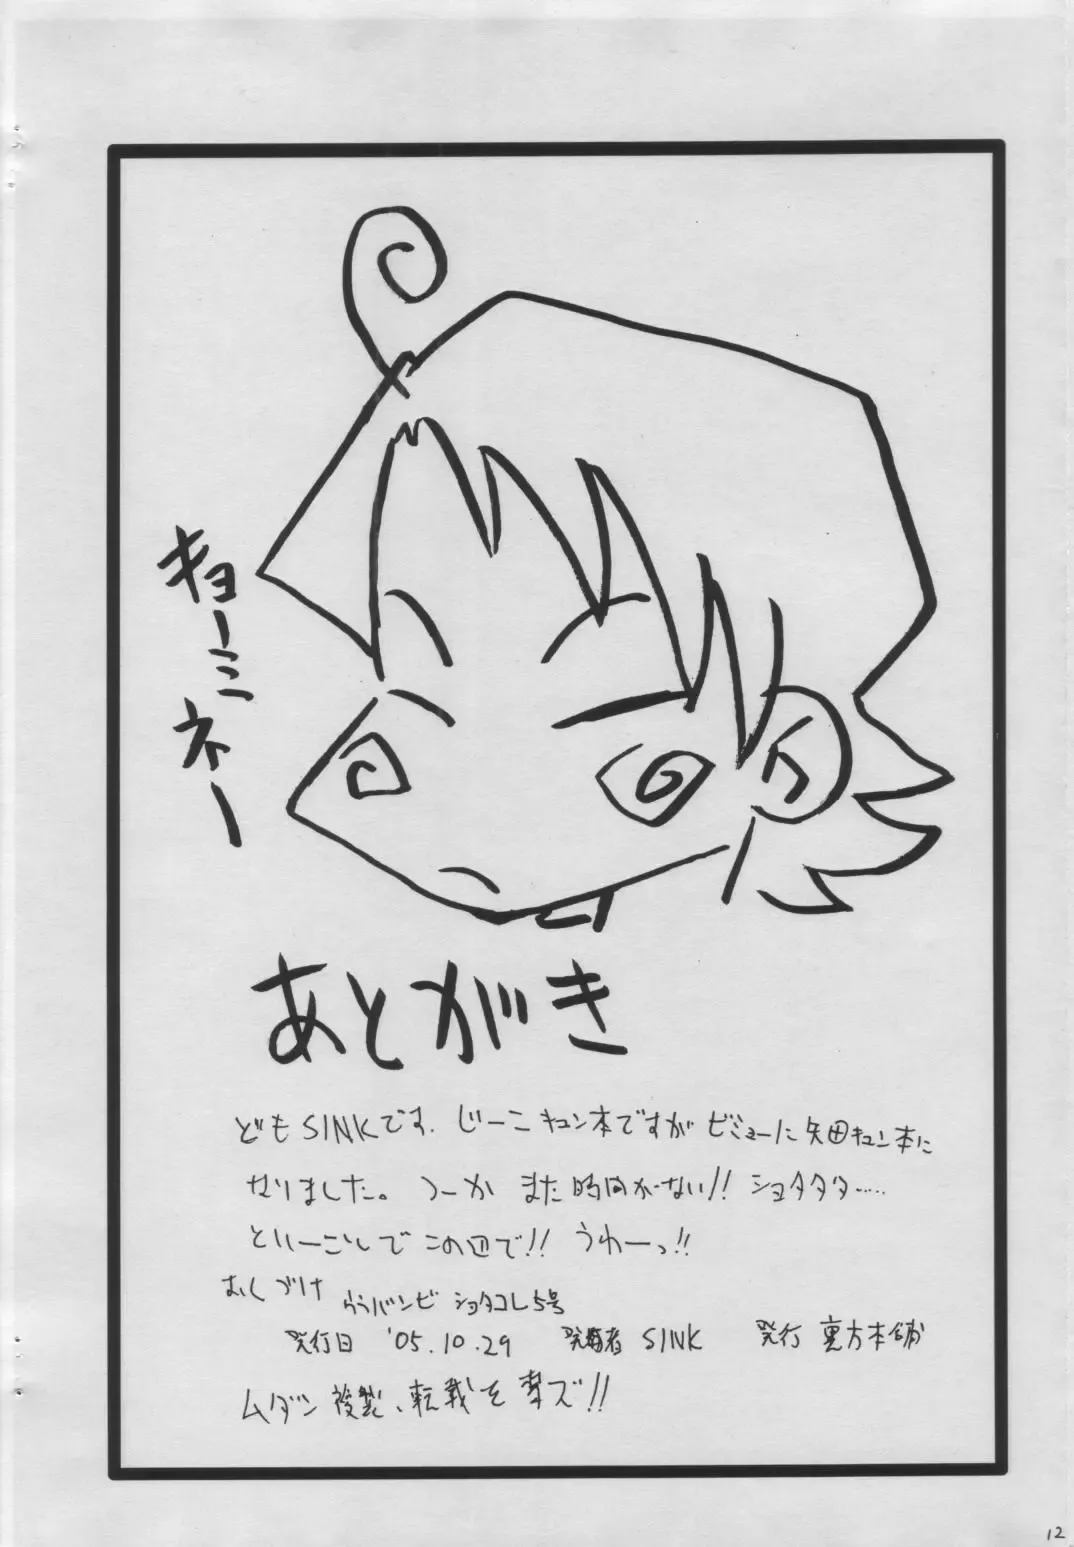 キョーミネー
あとがき
どもSINKです。じーこキュン本ですがビミョーに矢田キュン本に
なりました。つーか また時間がない!! ショタタタ……
といーことで この辺で!! うわーっ!!
おくづけ ウラバンビ ショタコレ5号
発行日 '05.10.29 発行者 SINK 発行 裏方本舗
ムダン複製、転載を禁ズ!!
12